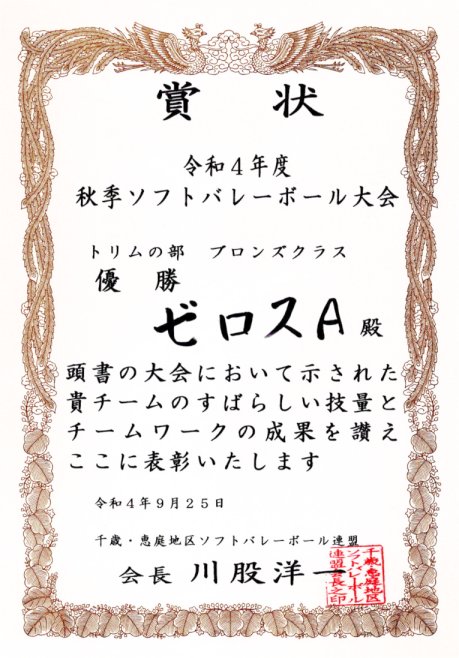 賞状
令和4年度
秋季ソフトバレーボール大会
トリムの部 ブロンズクラス
優勝
ゼロスA 殿
頭書の大会において示された
貴チームのすばらしい技量と
チームワークの成果を讃え
ここに表彰いたします
令和4年9月25日
千歳・恵庭地区ソフトバレーボール連盟
会長 川股洋一
千歳、恵庭地区
ソフトバレーボール
連盟会長之印